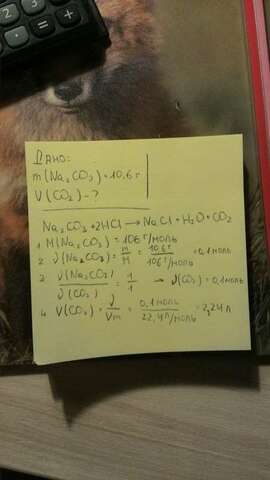 Дано:
m(Na₂CO₃)=10,6г
V(CO₂)-?
Na₂CO₃+2HCl→NaCl+H₂O+CO₂
1 M(Na₂CO₃)=106г/моль
2 ν(Na₂CO₃)=m/M=10,6г/106г/моль=0,1моль
3 ν(Na₂CO₃)/ν(CO₂)=1/1→ν(CO₂)=0,1моль
4 V(CO₂)=ν/Vm=0,1моль/22,4л/моль=2,24л